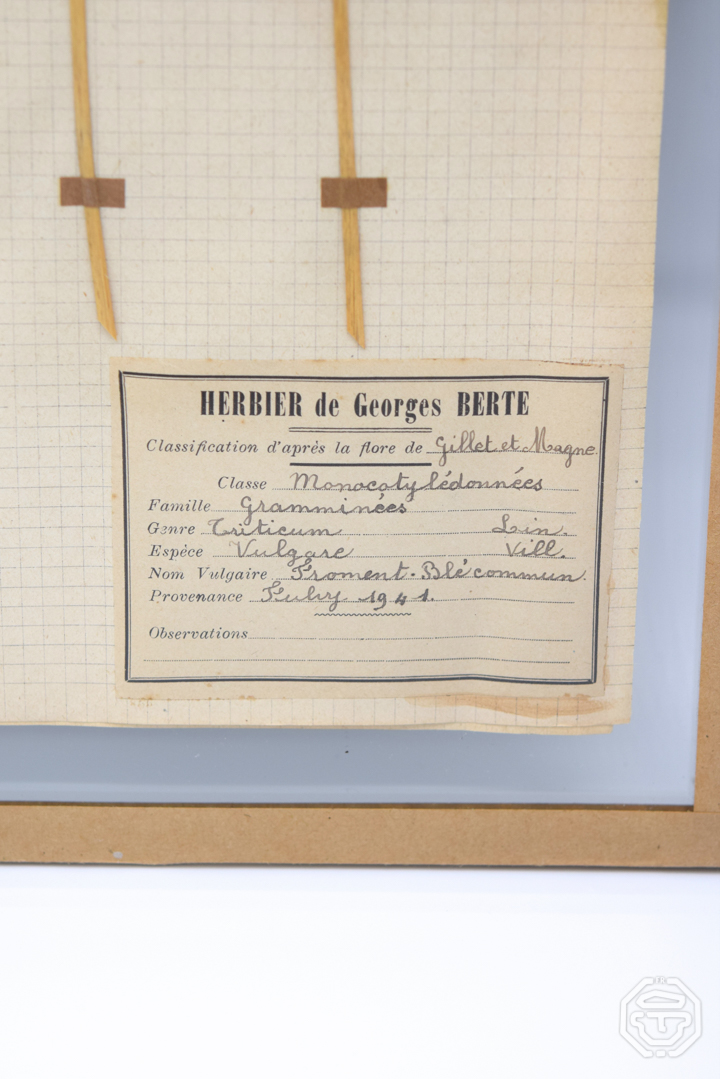 HERBIER de Georges BERTE
Classification d'après la flore de Gillet et Magne
Classe Monocotylédonnées
Famille Gramminées
Genre Triticum Lin.
Espèce Vulgare Vill.
Nom Vulgaire Froment-Blé commun.
Provenance 1941.
Observations